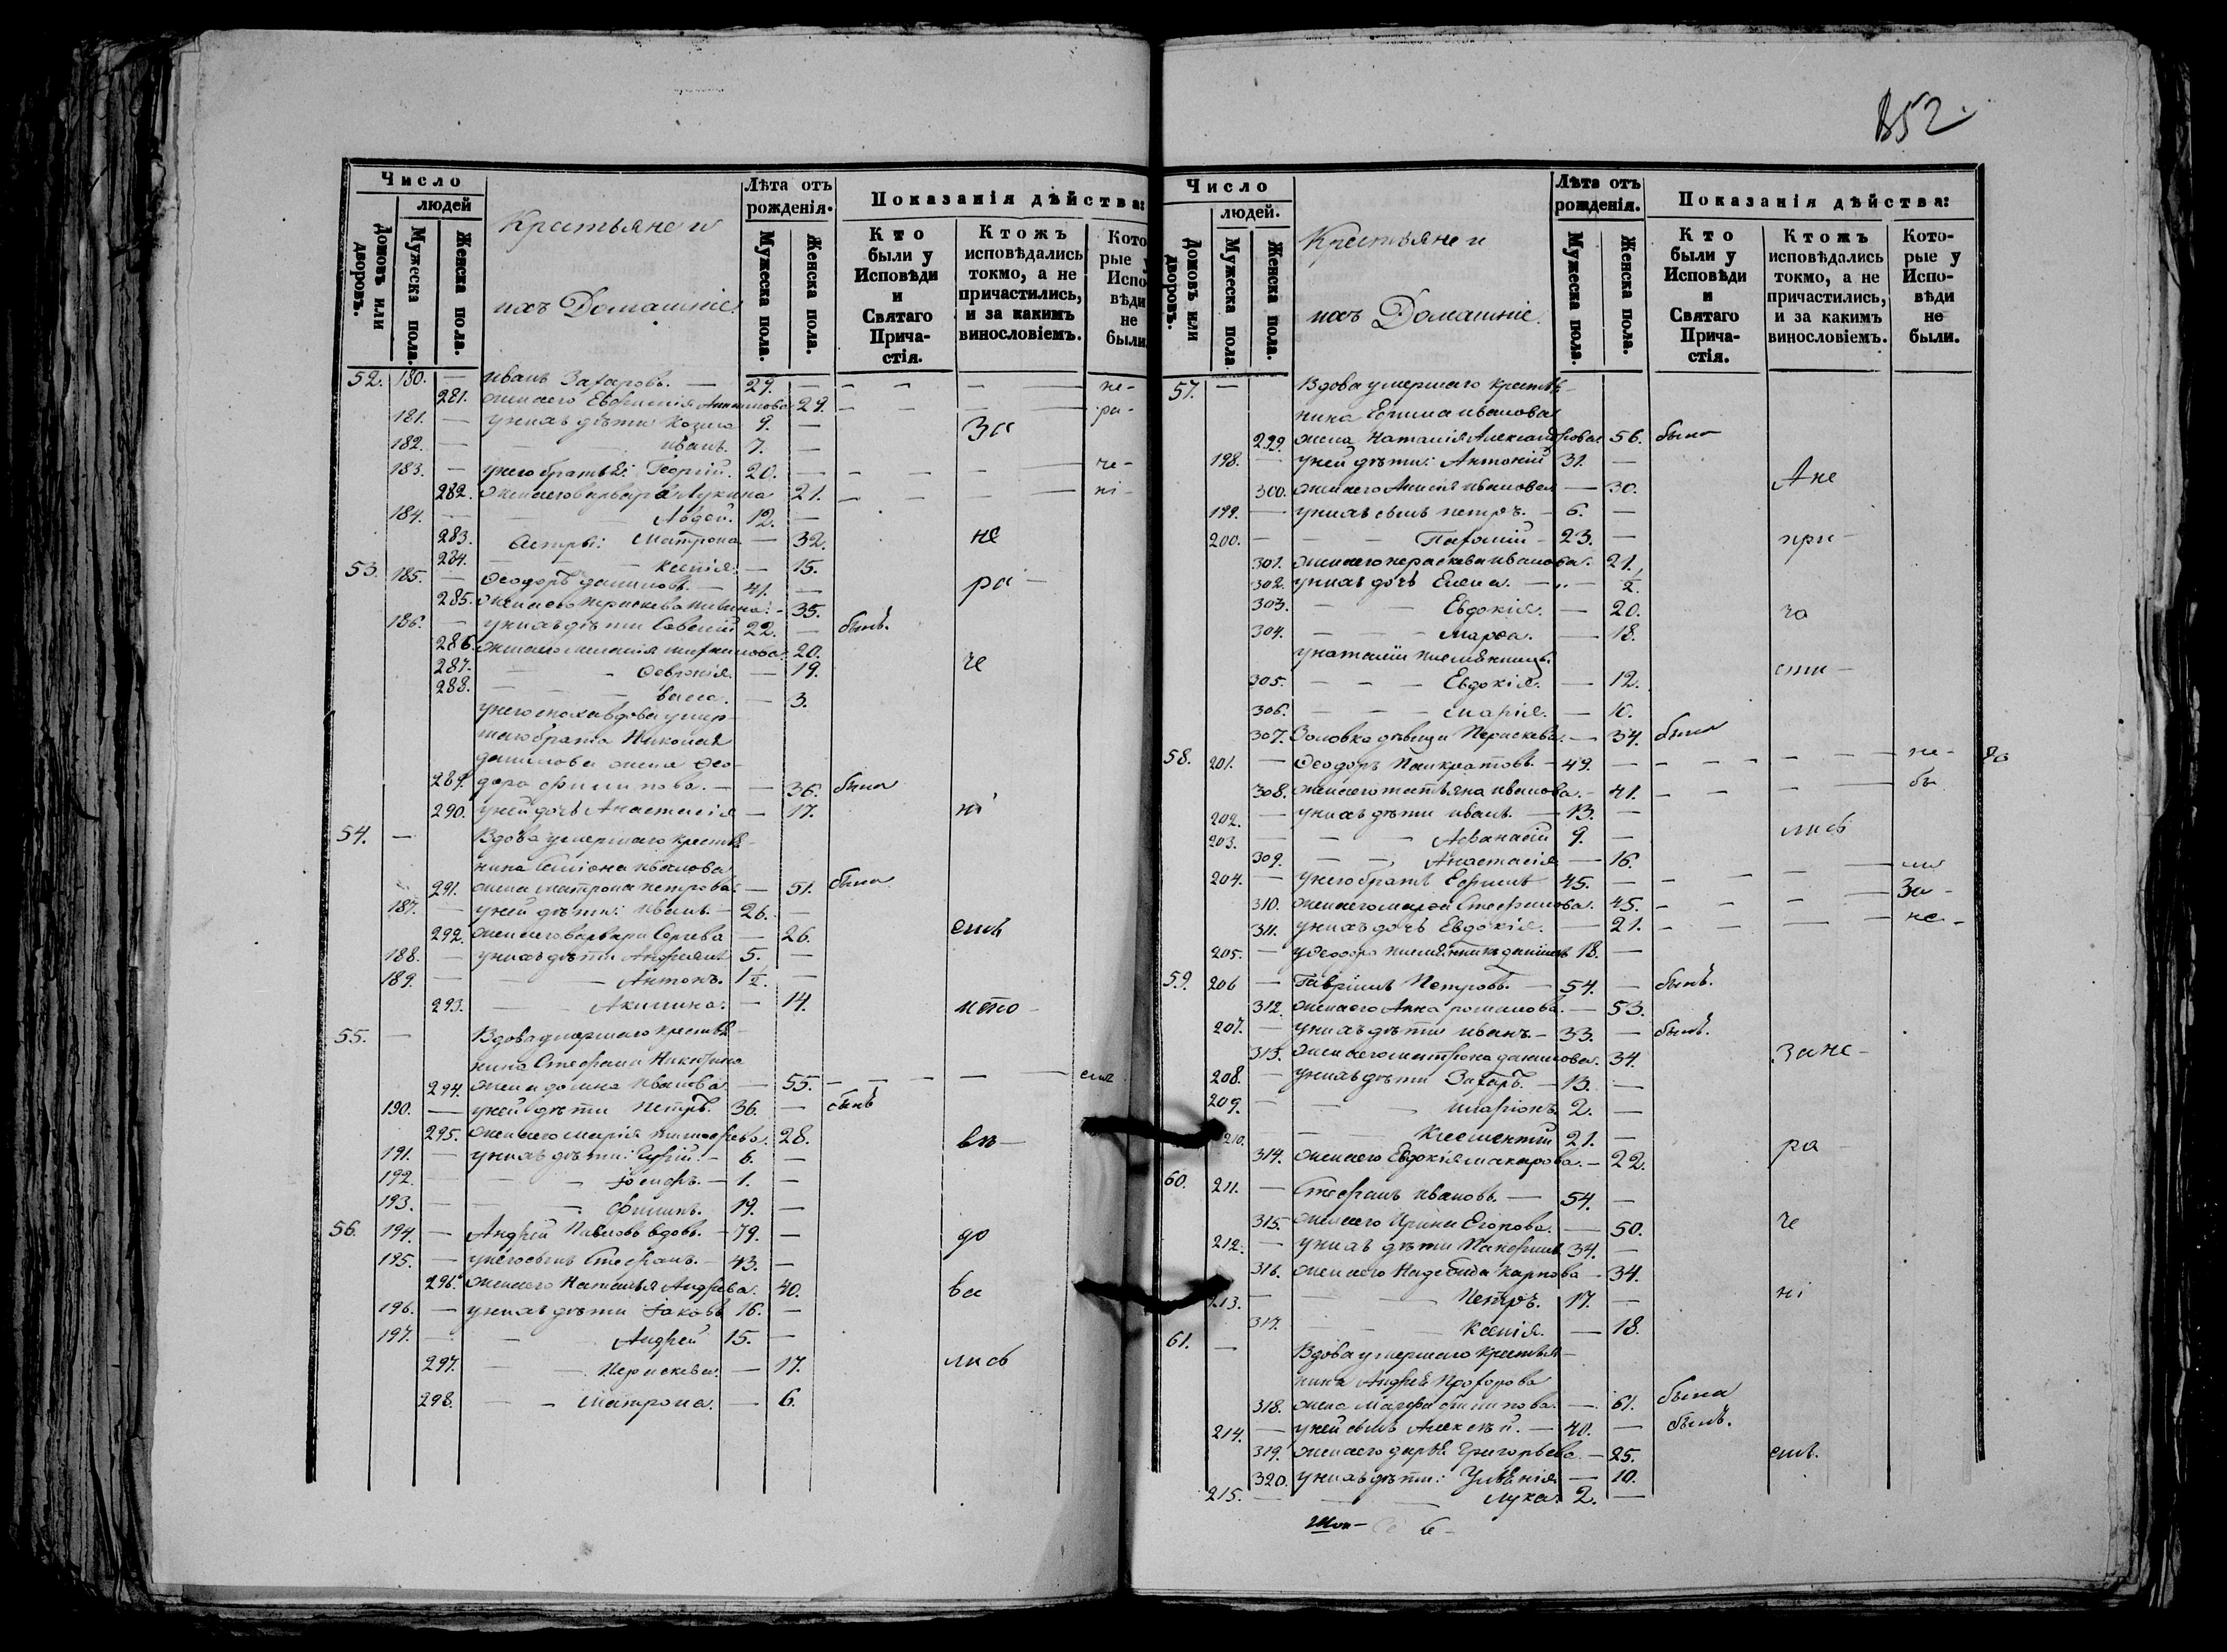 В52.
Число
людей
Домовъ или дворовъ.
Мужеска пола.
Женска пола.
Крестьяне и
ихъ Домашніе.
Лѣта отъ рожденія.
Мужеска пола.
Женска пола.
Показанія дѣйства:
Кто были у Исповѣди и Святаго Прича-стія.
Ктожъ исповѣдались токмо, а не причастились, и за какимъ винословіемъ.
Кото рые у Испо вѣди не были.
52. 180. — Иванъ Захаровъ. — 29. — — — — — не-
281. жена его Евфимія 29. — — — — ра-
181. — у нихъ дѣти Козма 9. — За
182. — — Иванъ. 7. —
183. — у него братья: Георгій. 20. — — — — — че-
282. жена его Варвара Лукина 21. — — — — ні-
184. — — Авдей. 12. —
283. Сестры: Матрона — 32. не
284. — — Ксенія. — 15.
53. 185. — Ѳеодоръ Даниловъ. — 41. — ра-
285. жена его Параскева — 35.
186. — у нихъ дѣти Савелій 22. — былъ.
286. жена его Меланія 20.
287. — — Февронія. — 19. че
288. — — Васса. — 3.
у него сноха вдова умер-
шаго брата Николая
Данилова жена Ѳео-
289. дора Филипова. — — 36. была
290. у ней дочь Анастасія — 17. ні
54. — Вдова умершаго крестья-
нина Симіона Иванова
291. жена Матрона Петрова — 51. была
187. — у ней дѣти: Иванъ. — 26. —
292. жена его Варвара Сергева — 26. емъ
188. — у нихъ дѣти Андреянъ 5. —
189. — — Антонъ. 1½. —
293. — — Акилина. — 14. исто-
55. — Вдова умершаго крестья-
нина Стефана Никитина
294. жена Домна Иванова — 55. — — — — — емъ
190. — у ней дѣти Петръ. 36. — былъ
295. жена его Марія Тимофѣева. 28. вѣ-
191. — у нихъ дѣти: Сергій. — 6. —
192. — — Іосифъ. — 1. —
193. — — Филипъ. 19. —
56. 194. — Андрей Павловъ вдовъ. — 79. — до
195. — у него сынъ Стефанъ. — 43. —
296. жена его Наталья Андрева. 40. ва
196. — у нихъ дѣти Іаковъ 16. —
197. — — Андрей 15. —
297. — — Параскева. — 17. лись
298. — — Матрона. — 6.
Число
людей.
Домовъ или дворовъ.
Мужеска пола
Женска пола.
Крестьяне и
ихъ Домашніе.
Лѣта отъ рожденія.
Мужеска пола.
Женска пола.
Показанія дѣйства:
Кто были у Исповѣди и Святаго Прича-стія.
Ктожъ исповѣдались токмо, а не причастились, и за какимъ винословіемъ.
Кото-рые у Испо-вѣди не были.
57. — Вдова умершаго крестья-
нина Ефима Иванова
299. жена Наталія Александрова 56. была
198. — у ней дѣти: Антоній 31. —
300. жена его Анисія Иванова — 30. А не
199. — у нихъ сынъ Петръ. — 6. —
200. — — — 23. — при-
301. жена его Параскева Иванова. 21.
302. у нихъ дочь Елена. — — ½.
303. — — Евдокія. — 20. ча
304. — — Марѳа. — 18.
у Наталіи племянницы.
305. — — Евдокія. — 12. сти-
306. — — Марія. — 10.
307. Золовка дѣвица Параскева. — 34. была
58. 201. — Ѳеодоръ Панкратовъ. — 49. — — — — — не-
308. жена его Татьяна Иванова. — 41. — — — — бы
202. — у нихъ дѣти Иванъ. — 13. —
203. — — Афанасій 9. — лись
309. — — Анастасія — 16.
204. — у него братъ Ефимъ 45. — — — — —
310. жена его Марѳа Стефанова. 45. — — — — За-
311. у нихъ дочь Евдокія. — 21. — — — — не-
205. — у Ѳеодора племянникъ Даніилъ 18. —
59. 206 — Гавріилъ Петровъ. — 54. — былъ.
312. жена его Анна Романова. — 53.
207. — у нихъ дѣти Иванъ. — 33. — былъ.
313. жена его Матрона Данилова. 34. за не-
208. — у нихъ дѣти Захаръ. — 13. —
209. — — Иларіонъ. 2. —
210. — — Климентій 21. —
314. жена его Евдокія Макарова. — 22. ра
60. 211. — Стефанъ Ивановъ. — 54. —
315. жена его Ирина Егорова. — 50. че
212. — у нихъ дѣти 34. —
316. жена его Надежда Карпова — 34.
213. — — Петръ. 17. — ні
317. — — Ксенія. — 18.
61. — Вдова умершаго крестья-
нина Андрея Прохорова
318. жена Марѳа Филипова. — 61. была
214. — у ней сынъ Алексѣй. — 40. — былъ.
319. жена его Дарья Григорьева — 25. емъ.
320. у нихъ дѣти: — 10.
215. — — Лука. 2. —